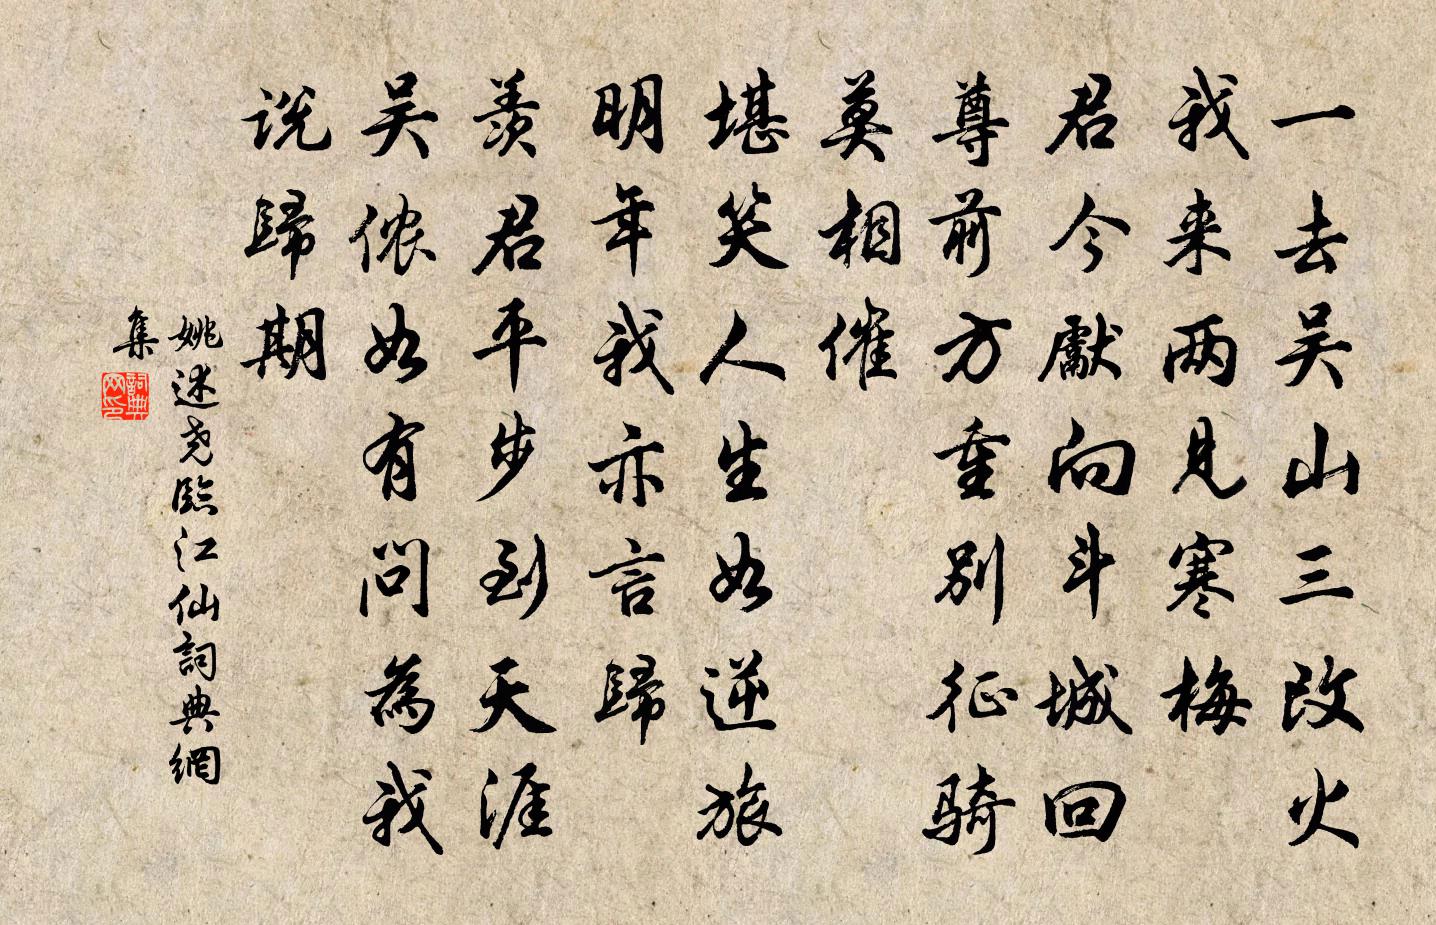 一去吴山三改火
我来两见寒梅
君今獻向斗城回
尊前方重别征骑
莫相催
堪笑人生如逆旅
明年我亦言歸
羡君平步到天涯
吴侬如有问為我
说歸期
姚述尧臨江仙詞典網
集
詞典网印